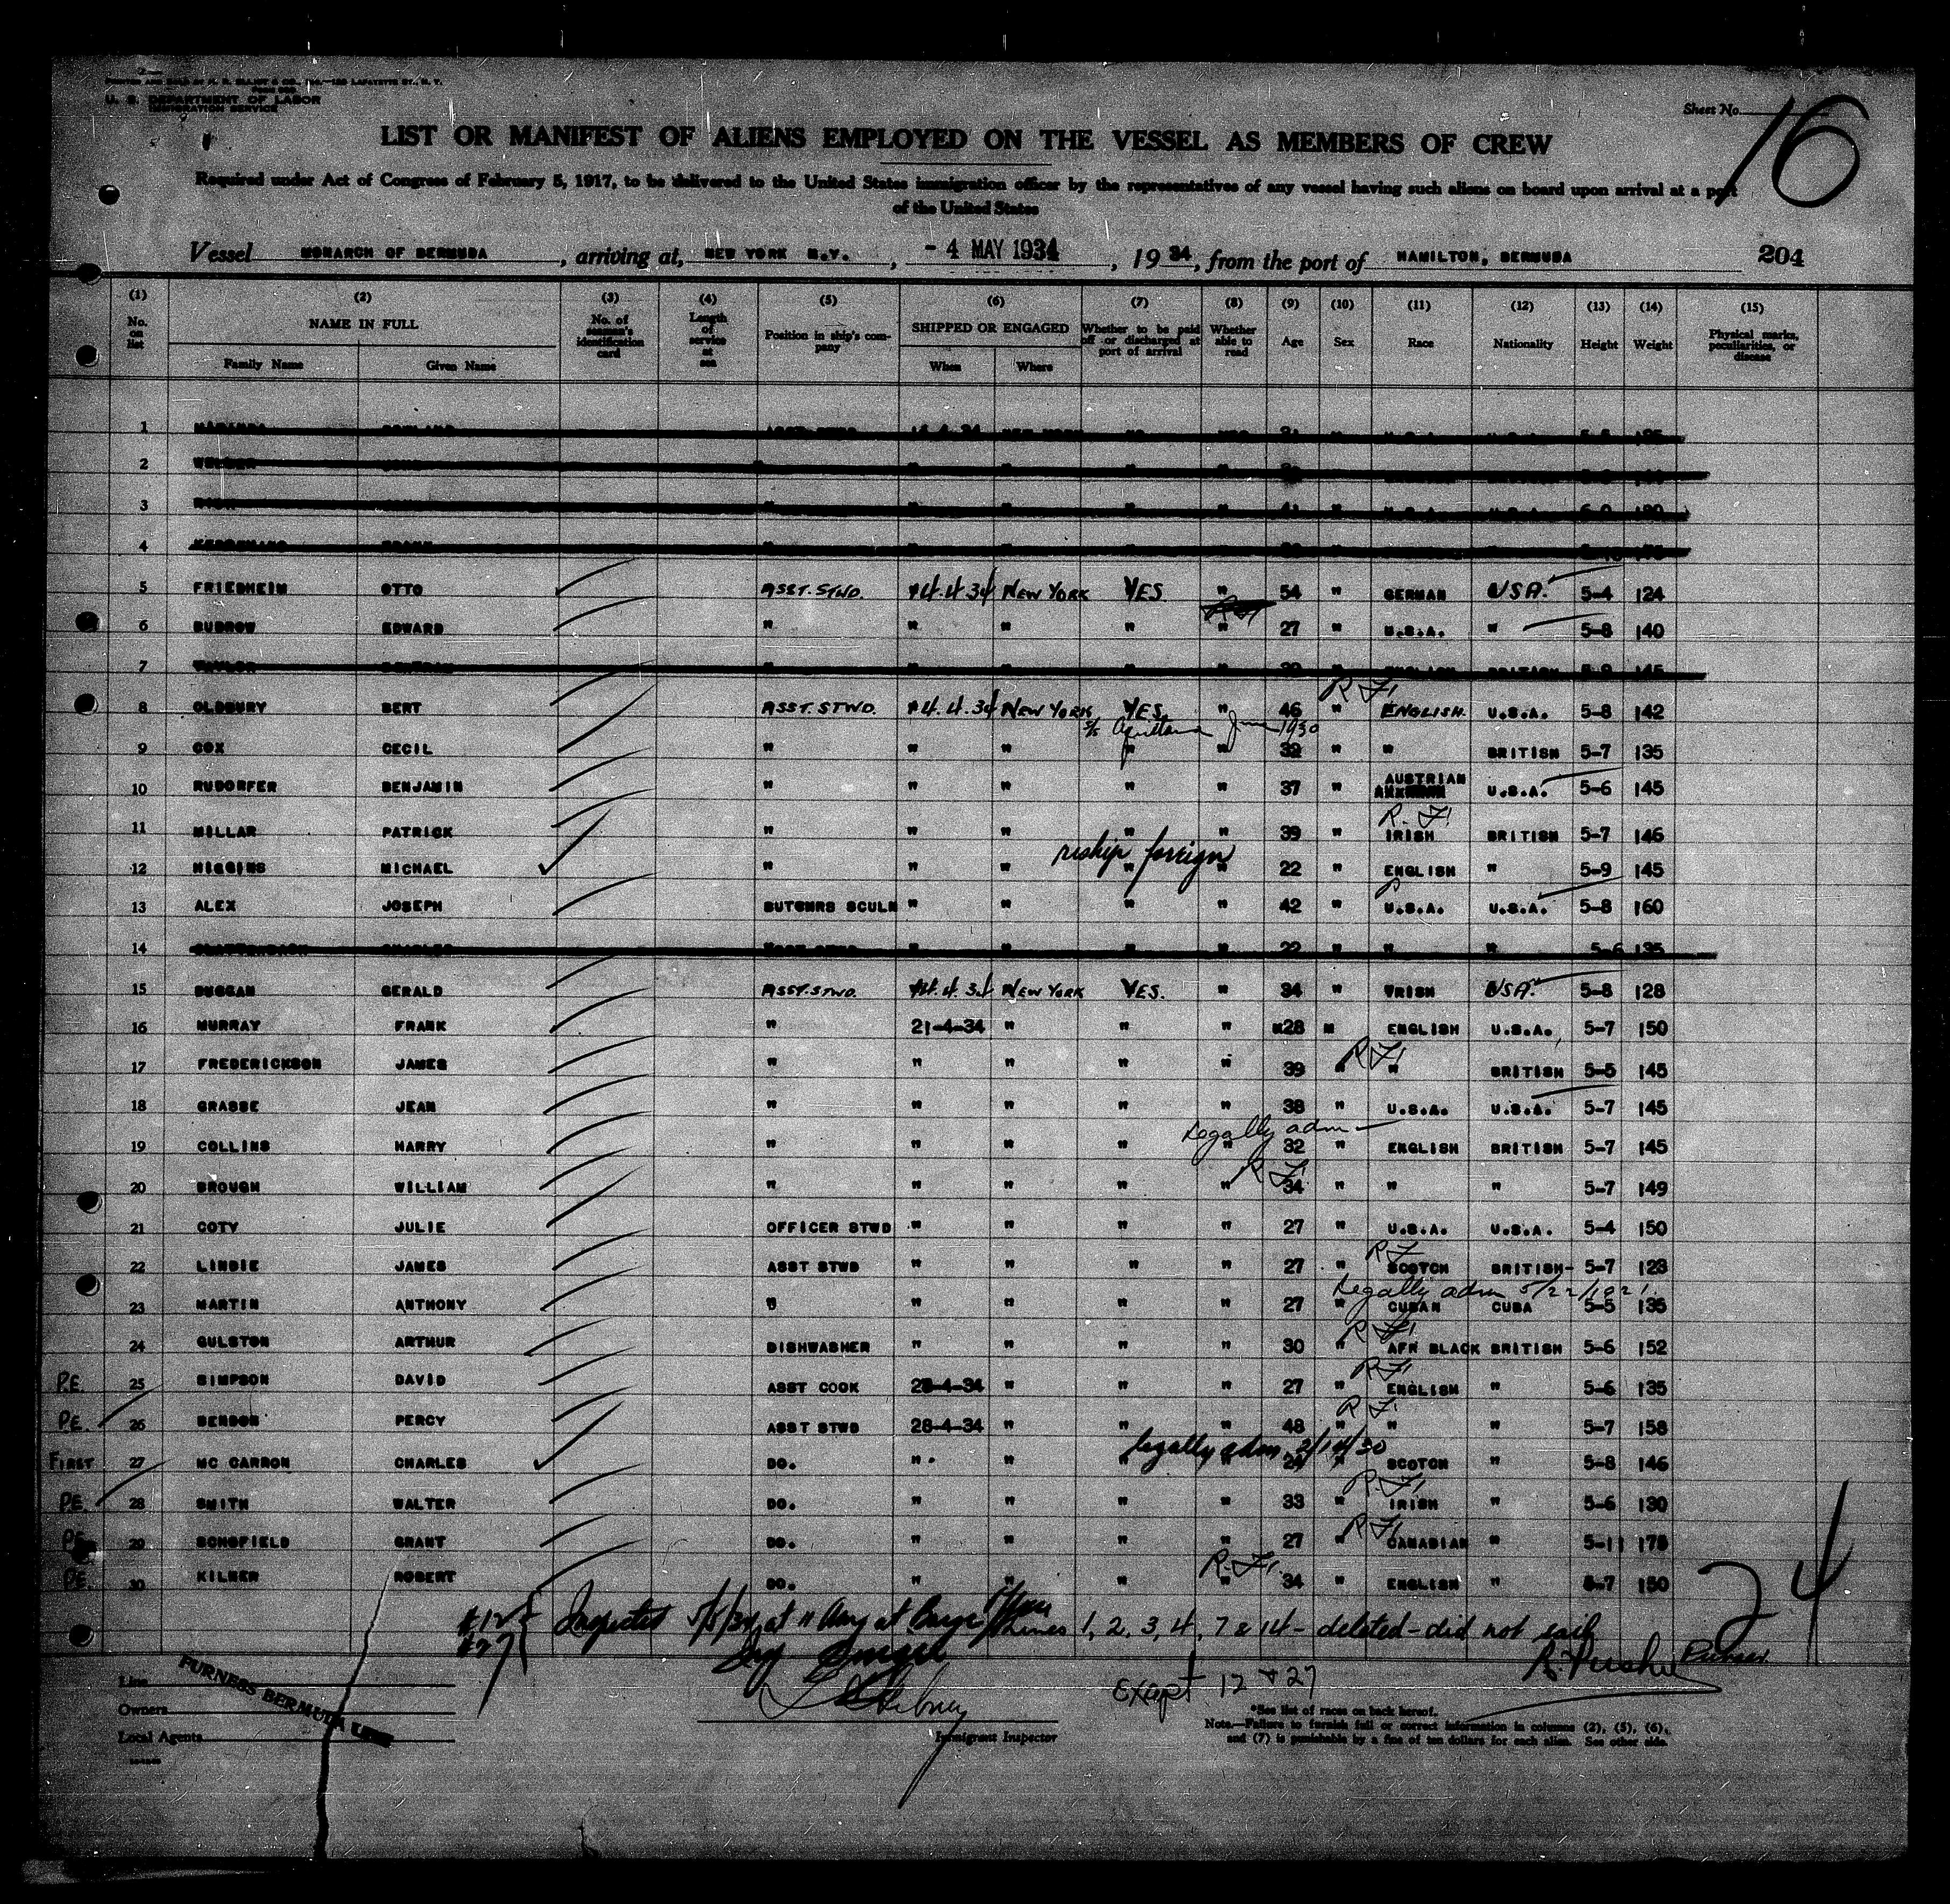 U. S. DEPARTMENT OF LABOR
IMMIGRATION SERVICE
Sheet No. 16
LIST OR MANIFEST OF ALIENS EMPLOYED ON THE VESSEL AS MEMBERS OF CREW
Required under Act of Congress of February 5, 1917, to be delivered to the United States immigration officer by the representatives of any vessel having such aliens on board upon arrival at a port
of the United States
Vessel MONARCH OF BERMUDA, arriving at, NEW YORK N.Y., - 4 MAY 1934, 19 34, from the port of HAMILTON, BERMUDA 204
(1) (2) (3) (4) (5) (6) (7) (8) (9) (10) (11) (12) (13) (14) (15)
No. on list NAME IN FULL Family Name Given Name No. of seaman's identification card Length of service at sea Position in ship's company SHIPPED OR ENGAGED When Where Whether to be paid off or discharged at port of arrival Whether able to read Age Sex Race Nationality Height Weight Physical marks, peculiarities, or disease
1
2
3
4
5 FRIEDHEIM OTTO ASST. STWD. 14.4.34 NEW YORK YES " 54 " GERMAN USA. 5-4 124
6 BUDROW EDWARD " " " " " 27 " U.S.A. " 5-8 140
7
R.F.
8 OLDBURY BERT ASST. STWD. 14.4.34 NEW YORK YES " 46 " ENGLISH. U.S.A. 5-8 142
S/S Aquitania June 1930
9 COX CECIL " " " " " 32 " " BRITISH 5-7 135
10 RUDORFER BENJAMIN " " " " " 37 " AUSTRIAN U.S.A. 5-6 145
R.F.
11 MILLAR PATRICK " " " " " 39 " IRISH BRITISH 5-7 146
reship foreign
12 HIGGINS MICHAEL " " " " " 22 " ENGLISH " 5-9 145
13 ALEX JOSEPH BUTCHRS SCULN " " " " 42 " U.S.A. U.S.A. 5-8 160
14
15 DUGGAN GERALD ASST. STWD. 14.4.34 NEW YORK YES. " 34 " IRISH USA. 5-8 128
16 MURRAY FRANK " 21-4-34 " " " 28 " ENGLISH U.S.A. 5-7 150
R.F.
17 FREDERICKSON JAMES " " " " " 39 " " BRITISH 5-5 145
18 GRASSE JEAN " " " " " 38 " U.S.A. U.S.A. 5-7 145
Legally adm
19 COLLINS HARRY " " " " " 32 " ENGLISH BRITISH 5-7 145
R.F.
20 BROUGH WILLIAM " " " " " 34 " " " 5-7 149
21 COTY JULIE OFFICER STWD " " " " 27 " U.S.A. U.S.A. 5-4 150
R.F.
22 LINDIE JAMES ASST STWD " " " " 27 " SCOTCH BRITISH 5-7 123
Legally adm
23 MARTIN ANTHONY " " " " " 27 " CUBAN CUBA 5-5 135
R.F.
24 GULSTON ARTHUR DISHWASHER " " " " 30 " AFN BLACK BRITISH 5-6 152
R.F.
P.E. 25 SIMPSON DAVID ASST COOK 28-4-34 " " " 27 " ENGLISH " 5-6 135
R.F.
P.E. 26 BENDON PERCY ASST STWD 28-4-34 " " " 48 " " " 5-7 158
legally adm 2/14/30
FIRST 27 MC CARRON CHARLES DO. " " " " 24 " SCOTCH " 5-8 146
R.F.
P.E. 28 SMITH WALTER DO. " " " " 33 " IRISH " 5-6 130
R.F.
P.E. 29 SCHOFIELD GRANT DO. " " " " 27 " CANADIAN " 5-11 178
R.F.
P.E. 30 KILNER ROBERT DO. " " " " 34 " ENGLISH " 5-7 150
24
#12 Inspected 5/5/34 at Lines 1, 2, 3, 4, 7 & 14 - deleted - did not sail
#27
Purser.
Except 12 & 27
Line
Owners
Local Agents
FURNESS BERMUDA LINE
Immigrant Inspector
*See list of races on back hereof.
Note.—Failure to furnish full or correct information in columns (2), (5), (6),
and (7) is punishable by a fine of ten dollars for each alien. See other side.